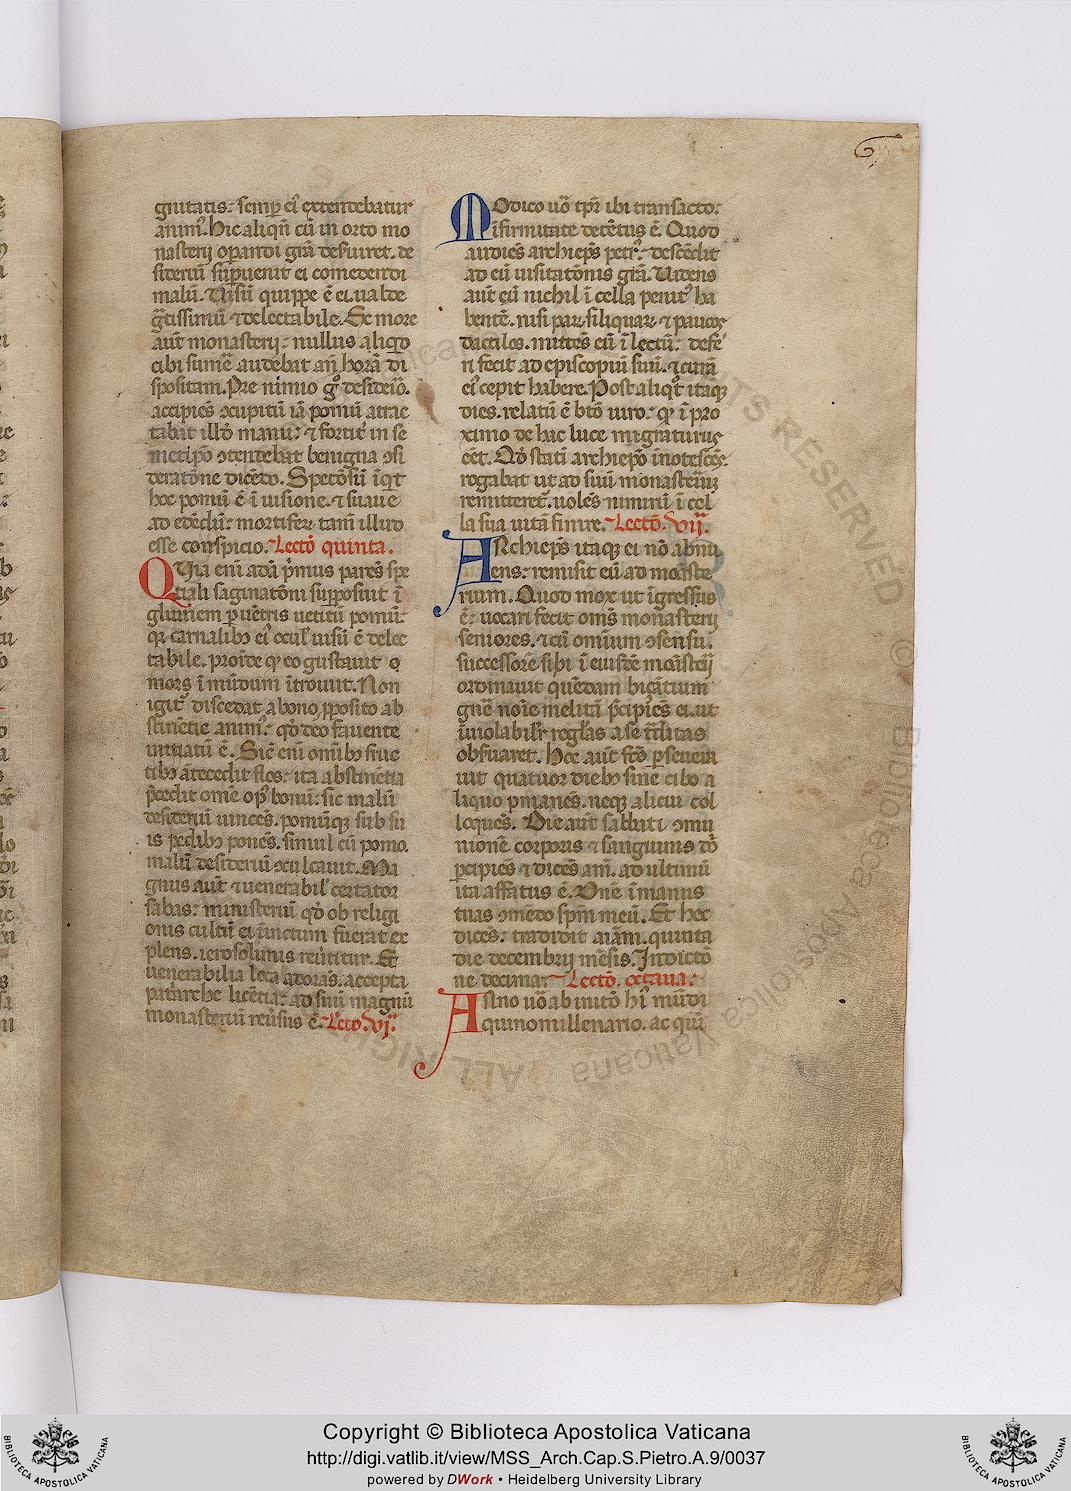 6
gnitatis: semp̲ ei᷒ extendebatur
animꝰ. Hic aliqn̄ cū in orto mo
nasterij op̲andi gr̄a defuiret. de
sideriū suꝑuenit ei comedendi
malū. Visū quippe ē ei. ualde
gr̄tissimū ⁊ delectabile. Ex more
aut̄ monasterij: nullus aliqd̓
cibi sumē audebat an̄ horā di
spositam. Pre nimio gͦ desiderio.
accipiēs ↄcupitū iā pomū attrac
tabat illd̓ manu: ⁊ fortit̄ in se
metip̄o ↄtendebat benigna ↄsi
deratōne dicēdo. Spetōsū iqͥt
hoc pomū ē ī uisione. ⁊ suaue
ad edēdū: mortifeꝝ tam̄ illud
esse conspicio. Lectō quinta.
QVia enī adā pͥmus parēs spe
tiali saginatōni supposuit ī
gluuiem ꝑ uētris uetitū pomū.
qꝛ carnalibꝫ eiꝰ ocul̓ uisū ē delec
tabile. proīde qꝛ eo gustauit
mors ī mūdum ītrouit. Non
igit᷑ discedat a bono ꝓposito ab
stinētie animꝰ. qd̓ deo fauente
initiatū ē. Sic̄ enī omībꝫ fruc
tibꝫ ātecedit flos: ita abstinētia
p̄cedit omē opꝰ bonū: sic malū
desideriū uincēs. pomūqꝫ sub su
is pedibꝫ ponēs. simul cū pomo.
malū desideriū ↄculcauit. Ma
gnus aut̄ ⁊ uenerabil̓ certator
sabas: ministeriū qd̓ ob religi
onis cultū ei īiunctum fuerat ex
plens. ierosolimis reuertitur. Et
uenerabilia loca adorās. accepta
patͥarche licētia: ad suū magnū
monasteriū reūsus ē. Lectō. vj.
MOdico uō tp̄r ibi transacto:
īfirmitate detētus ē. Quod
audiēs archiep̄s petrꝰ: descēdit
ad eū uisitatōnis gr̄a. Videns
aut̄ eū nichil ī cella penitꝰ ha
bentē. nisi paꝝ siliquaꝝ ⁊ paucos
dactilos. mittēs eū ī lectū: defe
ri fecit ad episcopiū suū. ⁊ curā
eiꝰ cepit habere. Post aliqͦt itaqꝫ
dies. relatū ē btō uiro: qꝛ ī pro
ximo de hac luce migraturus
eēt. Qd̓ statī archiep̄o īnotescēs.
rogabat ut ad suū monasteriū
remitteret᷑. uolēs nimirū ī cel
la sua uitā finire. Lectō. vij.
ARchiep̄s itaqꝫ ei nō abnu
ens: remisit eū ad monaste
rium. Quod mox ut īgressus
ē: uocari fecit omēs monasterij
seniores. ⁊ cū omnium ↄsensu.
successorē sibi ī eiusdē monasterij
ordinauit quēdam bicātium
gnē noīe melitū p̄cipiēs ei. ut
īuiolabilr̄ regl̓as a se t̄ditas
obẜuaret. Hoc aut̄ fcō ꝑseuera
uit quatuor diebꝫ sine cibo a
liquo ꝑmanēs. neqꝫ alicui col
loquēs. Die aut̄ sabbati ↄmu
nionē corporis ⁊ sanguinis dn̄i
ꝑcipiēs ⁊ dicēs am̄. ad ultimū
ita affatus ē. Dn̄e ī manus
tuas ↄmēdo sp̄m meū. Et hoc
dicēs: tradidit aīam. quinta
die decembrij mēsis. Indictō
ne decima: Lectō. octaua:
ANno uō ab initō hꝰ mūdi
quinomillenario. ac quin
ALL RIGHTS RESERVED © Biblioteca Apostolica Vaticana
Copyright © Biblioteca Apostolica Vaticana
http://digi.vatlib.it/view/MSS_Arch.Cap.S.Pietro.A.9/0037
powered by DWork • Heidelberg University Library
BIBLIOTECA APOSTOLICA VATICANA
BIBLIOTECA APOSTOLICA VATICANA